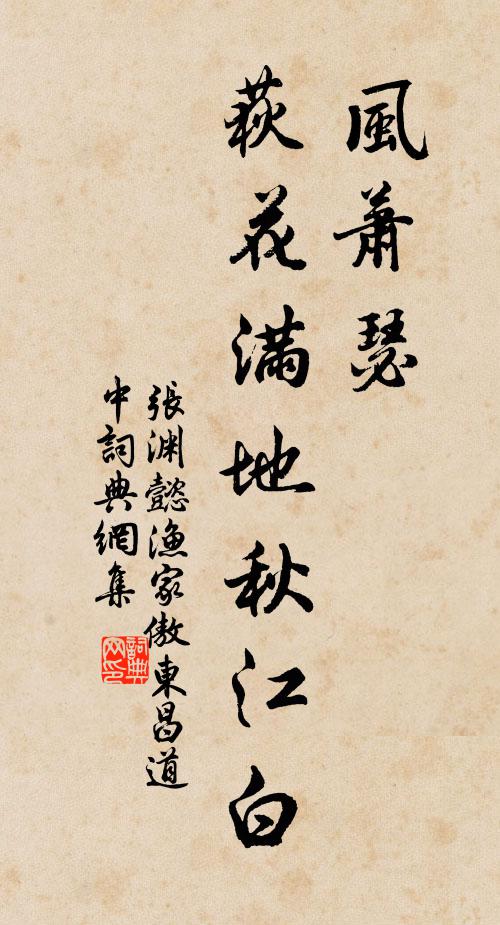 風蕭瑟
萩花滿地秋江白
張淵懿漁家傲東昌道
中詞典網集
詞典
网印